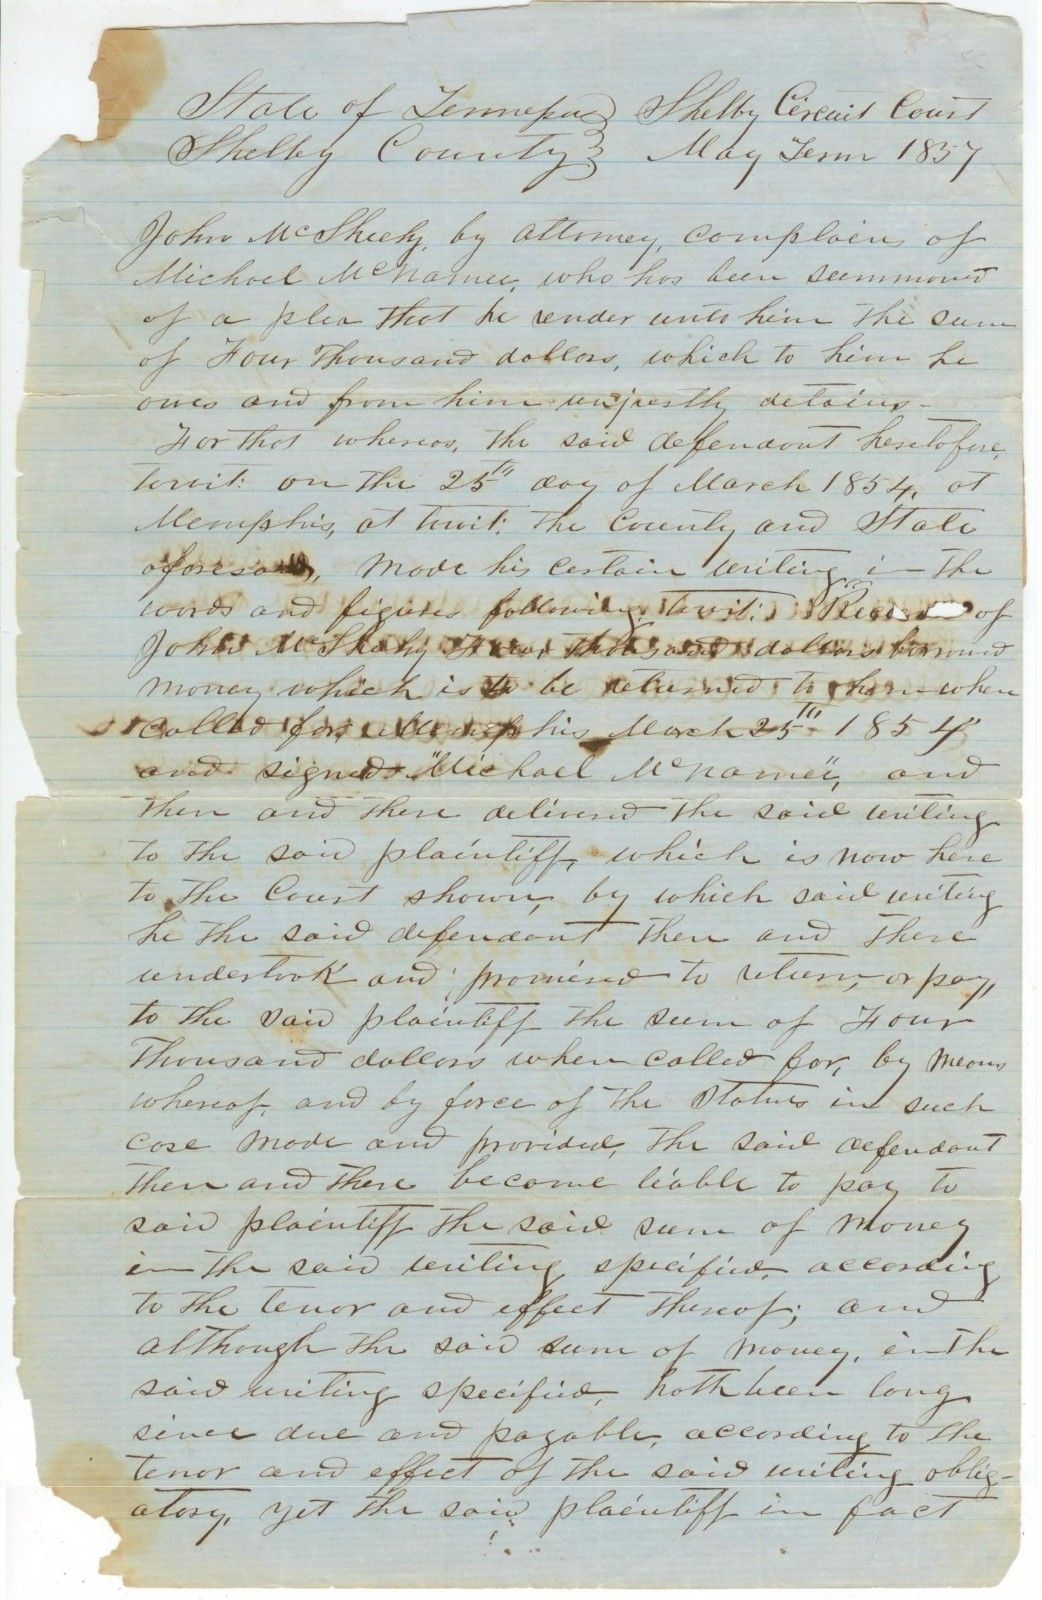 State of Tennessee } Shelby Circuit Court
Shelby County } May Term 1857
John McSheehy, by attorney, complains of
Michael McNamee, who has been summoned
of a plea that he render unto him the sum
of Four Thousand dollars, which to him he
owes and from him unjustly detains -
For that whereas, the said defendant heretofore,
towit: on the 25th day of March 1854, at
Memphis, at towit: the County and State
aforesaid, made his certain writing in the
words and figures following towit: "Recd of
John McSheehy Four Thousand dollars borrowed
money which is to be returned to him when
called for, Memphis March 25th 1854"
and signed "Michael McNamee", and
then and there delivered the said writing
to the said plaintiff, which is now here
to the Court shown, by which said writing
he the said defendant then and there
undertook and promised to return, or pay,
to the said plaintiff the sum of Four
Thousand dollars when called for, by means
whereof, and by force of the Statutes in such
case made and provided, the said defendant
then and there became liable to pay to
said plaintiff the said sum of money
in the said writing specified, according
to the tenor and effect thereof; and
although the said sum of money, in the
said writing specified, hath been long
since due and payable, according to the
tenor and effect of the said writing oblig-
atory, yet the said plaintiff in fact